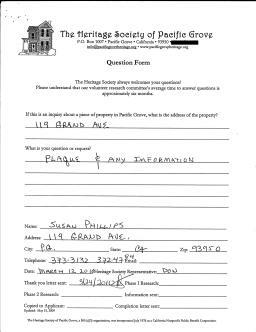 The Heritage Society of Pacific Grove
P.O. Box 1007 • Pacific Grove • California • 93950
info@pacificgroveheritage.org • www.pacificgroveheritage.org
Question Form
The Heritage Society always welcomes your questions!
Please understand that our volunteer research committee's average time to answer questions is
approximately six months.
If this is an inquiry about a piece of property in Pacific Grove, what is the address of the property?
119 GRAND AVE.
What is your question or request?
PLAQUE & ANY INFORMATION
Name: SUSAN PHILLIPS
Address: 119 GRAND AVE.
City: P.G. State: CA Zip: 93950
Telephone: 373-3132 Email:
Date: MARCH 12 2012 Heritage Society Representative: DON
Thank you letter sent: 3/24/2012 Phase 1 Research:
Phase 2 Research: Information sent:
Copied to Applicant: Completion letter sent:
Updated: May 13, 2009
The Heritage Society of Pacific Grove, a 501(c)3 organization, was incorporated July 1976 as a California Nonprofit Public Benefit Corporation